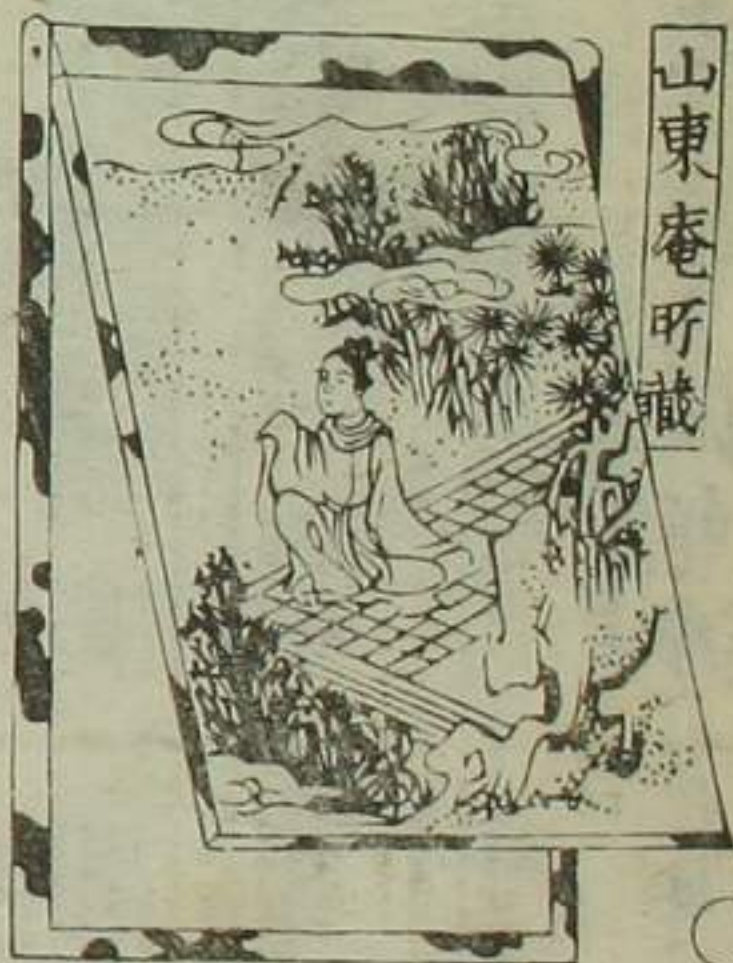 山東庵所蔵